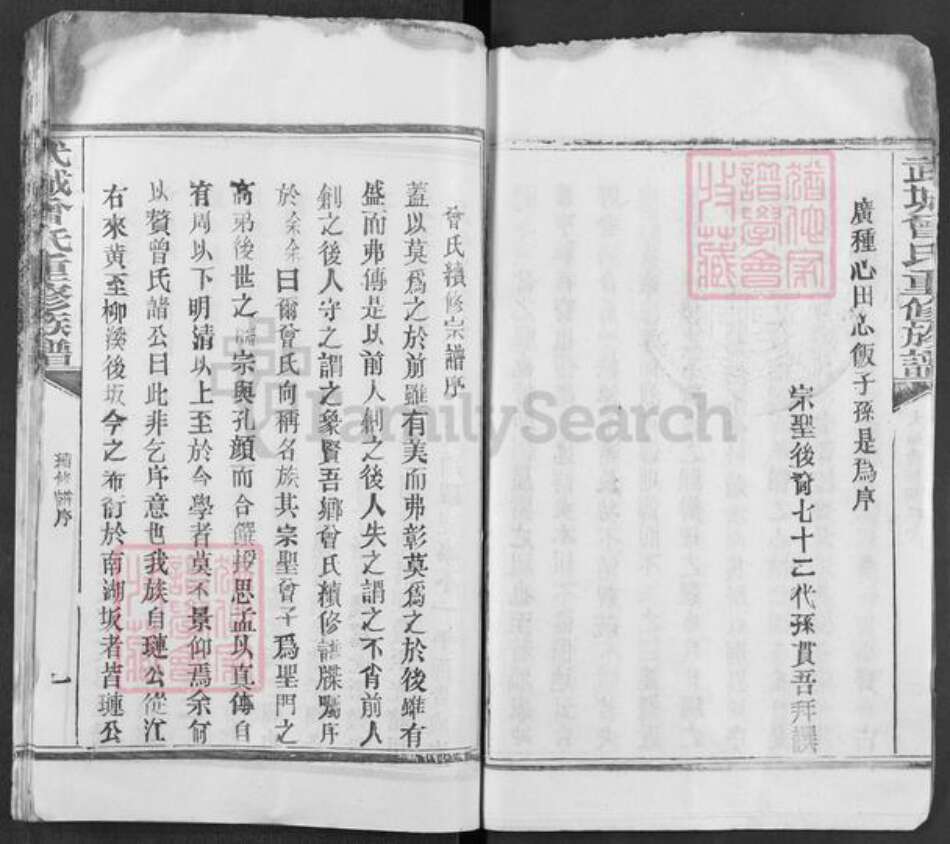 武城曾氏重修族譜
廣種心田心飯子孫是為序
宗聖後裔七十二代孫貫吾拜譔
猶他家譜學會收藏
曾氏續修宗譜序
蓋以莫為之於前雖有美而弗彰莫為之於後雖有
盛而弗傳是以前人創之後人失之謂之不肖前人
創之後人守之謂之象賢吾鄉曾氏續修譜牒囑序
於余余曰爾曾氏向稱名族其宗聖曾子為聖門之
高弟後世之宗與孔顏而合饌授思孟以真傳自
有周以下明清以上至於今學者莫不景仰焉余何
以贅曾氏諸公曰此非乞序意也我族自璉公從江
右來黄至柳溪後坂今之布衍於南湖坂者皆璉公
猶他家譜學會收藏
武城曾氏重修族譜
續修譜序
一
FamilySearch